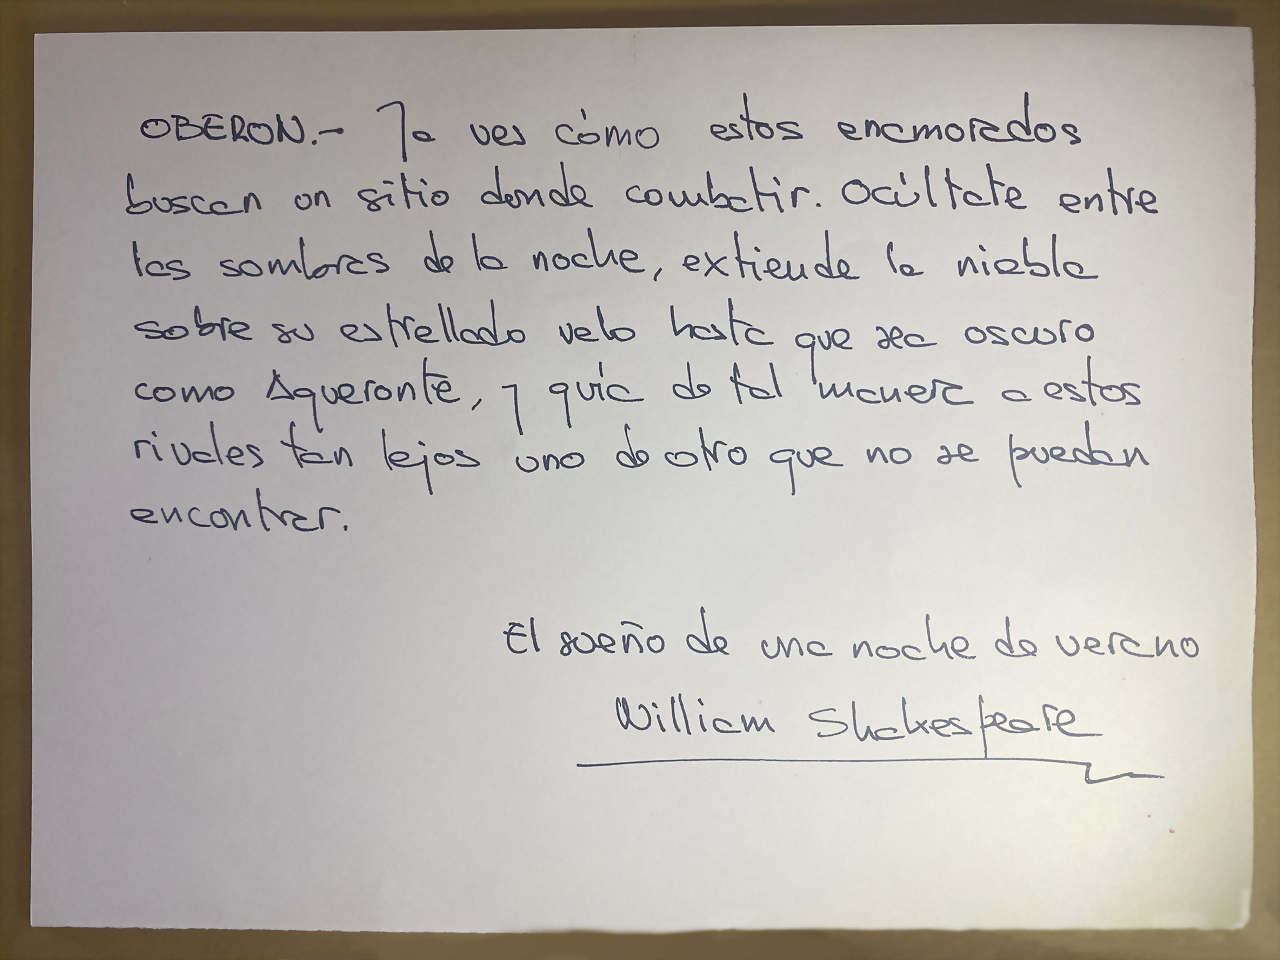 OBERON.- Ya ves cómo estos enamorados
buscan un sitio donde combatir. Ocúltate entre
las sombras de la noche, extiende la niebla
sobre su estrellado velo hasta que sea oscuro
como Aqueronte, y guía de tal manera a estos
rivales tan lejos uno de otro que no se puedan
encontrar.
El sueño de una noche de verano
William Shakespeare